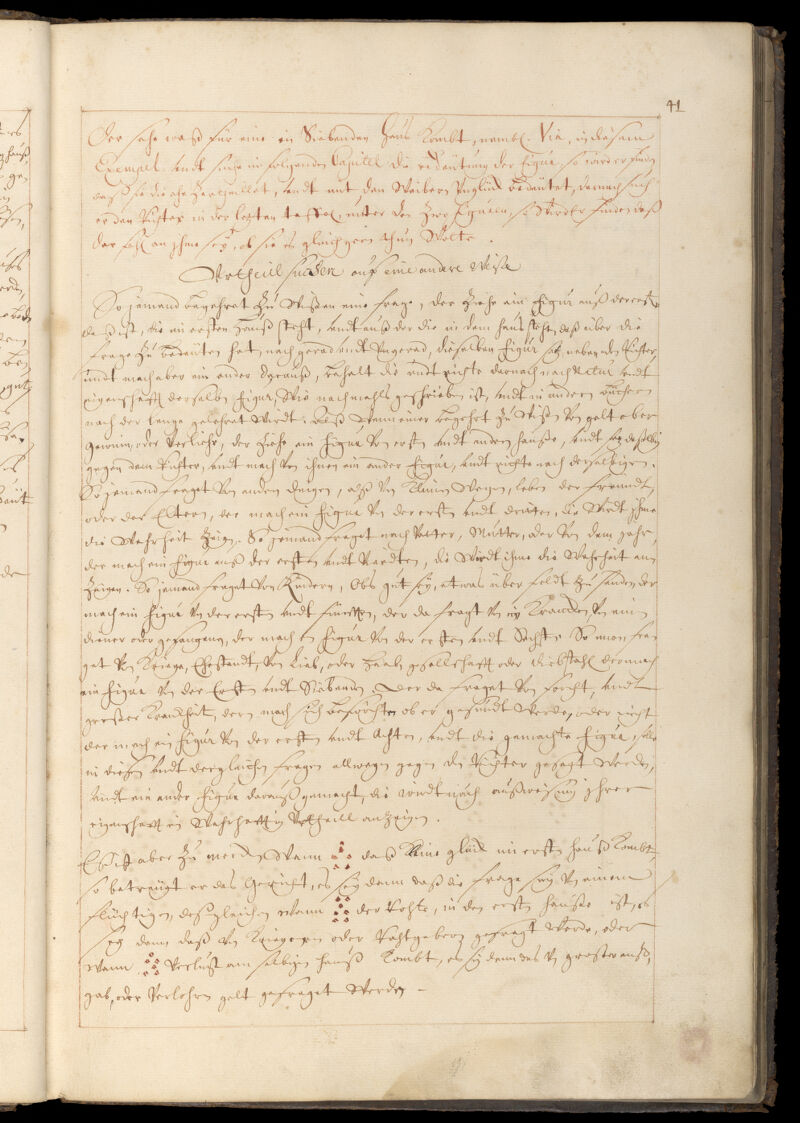 41
Der sehe waß für eine in Siebenden Hauß Kombt, nembl. Via, in diesem
Exempel. undt suche im folgenden Capittel die bedeütung der figur, so wird er finden
daß sie die ehe Zertheillet, undt mit den Weibern Unglück bedeütet, darnach such
er den Richter in der letzten taffel, unter den Zwo Figuren, so wird er finden daß
der fehl an ihme sey, ob sie es gleich gern thun Wolte.
Urtheill suchen auf eine andere Weise
So jemand begehret Zu Wißen eine frage, der Ziehe ein Figur auß der ersten
daß ist, die im ersten Hauß steht, undt auß der die in dem hauß steht, daß über die
frage Zu bedeüten hat, nach gerad undt Ungerad, dieselben Figur setz neben den Richter
undt mach aber ein ander daraus, behalt die undt richte darnach nach Natur undt
eigenschafft derselben Figur, Wie nachmahls geschrieben ist, undt in andern büchern
nach der lenge gelehret Wirdt. Alß Wann einer begehrt Zu Wißen Von gelt oder
gewinn, oder Verliehr, der Ziehe ein Figur Von ersten undt andern hauße, undt setz dieselbig
gegen dem Richter, undt mach Von ihnen ein ander Figur, undt richte nach derselbigen.
So jemand fraget Von andern dingen, alß Von Kleinen Wegen, leben der freundt,
oder der Eltern, der mach ein Figur Von der ersten undt dritten, die Wirdt ihme
die Wahrheit Zeigen. So jemand fraget nach Vatter, Mutter, oder Von dem Jahr,
der mach ein Figur auß der ersten undt Vierdten, die Wirdt ihme die Wahrheit an
Zeigen. So jemand fraget Von Kindern, Obs gut sey, etwas über feldt Zu senden, der
mach ein Figur Von der ersten undt fünfften, der da fragt Von ein Krancken Von ein
diener oder gefangenen, der mach ein Figur Von der ersten undt Sechste So man fra
get Von Kriege, Ehestandt, Von Lieb, oder handt gesellschafft oder diebstahl der mach
ein Figur Von der Ersten undt Siebenden. Der da fraget Von forcht, undt
großer Kranckheit, dern mach sich befürchten ob er gesundt Werde, oder nicht
der mach ein Figur Von der ersten undt Achten, undt die gemachte Figur, soll
in diesen undt dergleichen fragen allwegen gegen den Richter gesetzt Werden,
undt ein ander Figur darauß gemacht, die wirdt nach außweisung ihrer
eigenschafft ein Wahrhafftig Urtheill anzeigen.
Es ist aber Zu mercken Wann daß Kleine glück im ersten hauß Kombt,
so betreügt er das Gericht, es sey dann daß die frage sey Von einem
flüchtigen, desgleichen wann der Rohte, in dem ersten hauße ist, es
sey dann daß Von Kriegern oder Rahtgebern gefragt Werde, oder
Wann Verlust am selbigen hauß Kombt, es sey dann das Von
gab, oder Verlohren gelt gefraget Werde